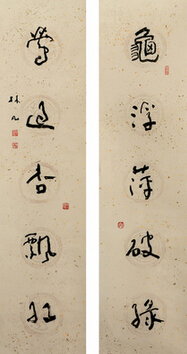 龜浮萍破綠
鶯過杏飄紅
林凡